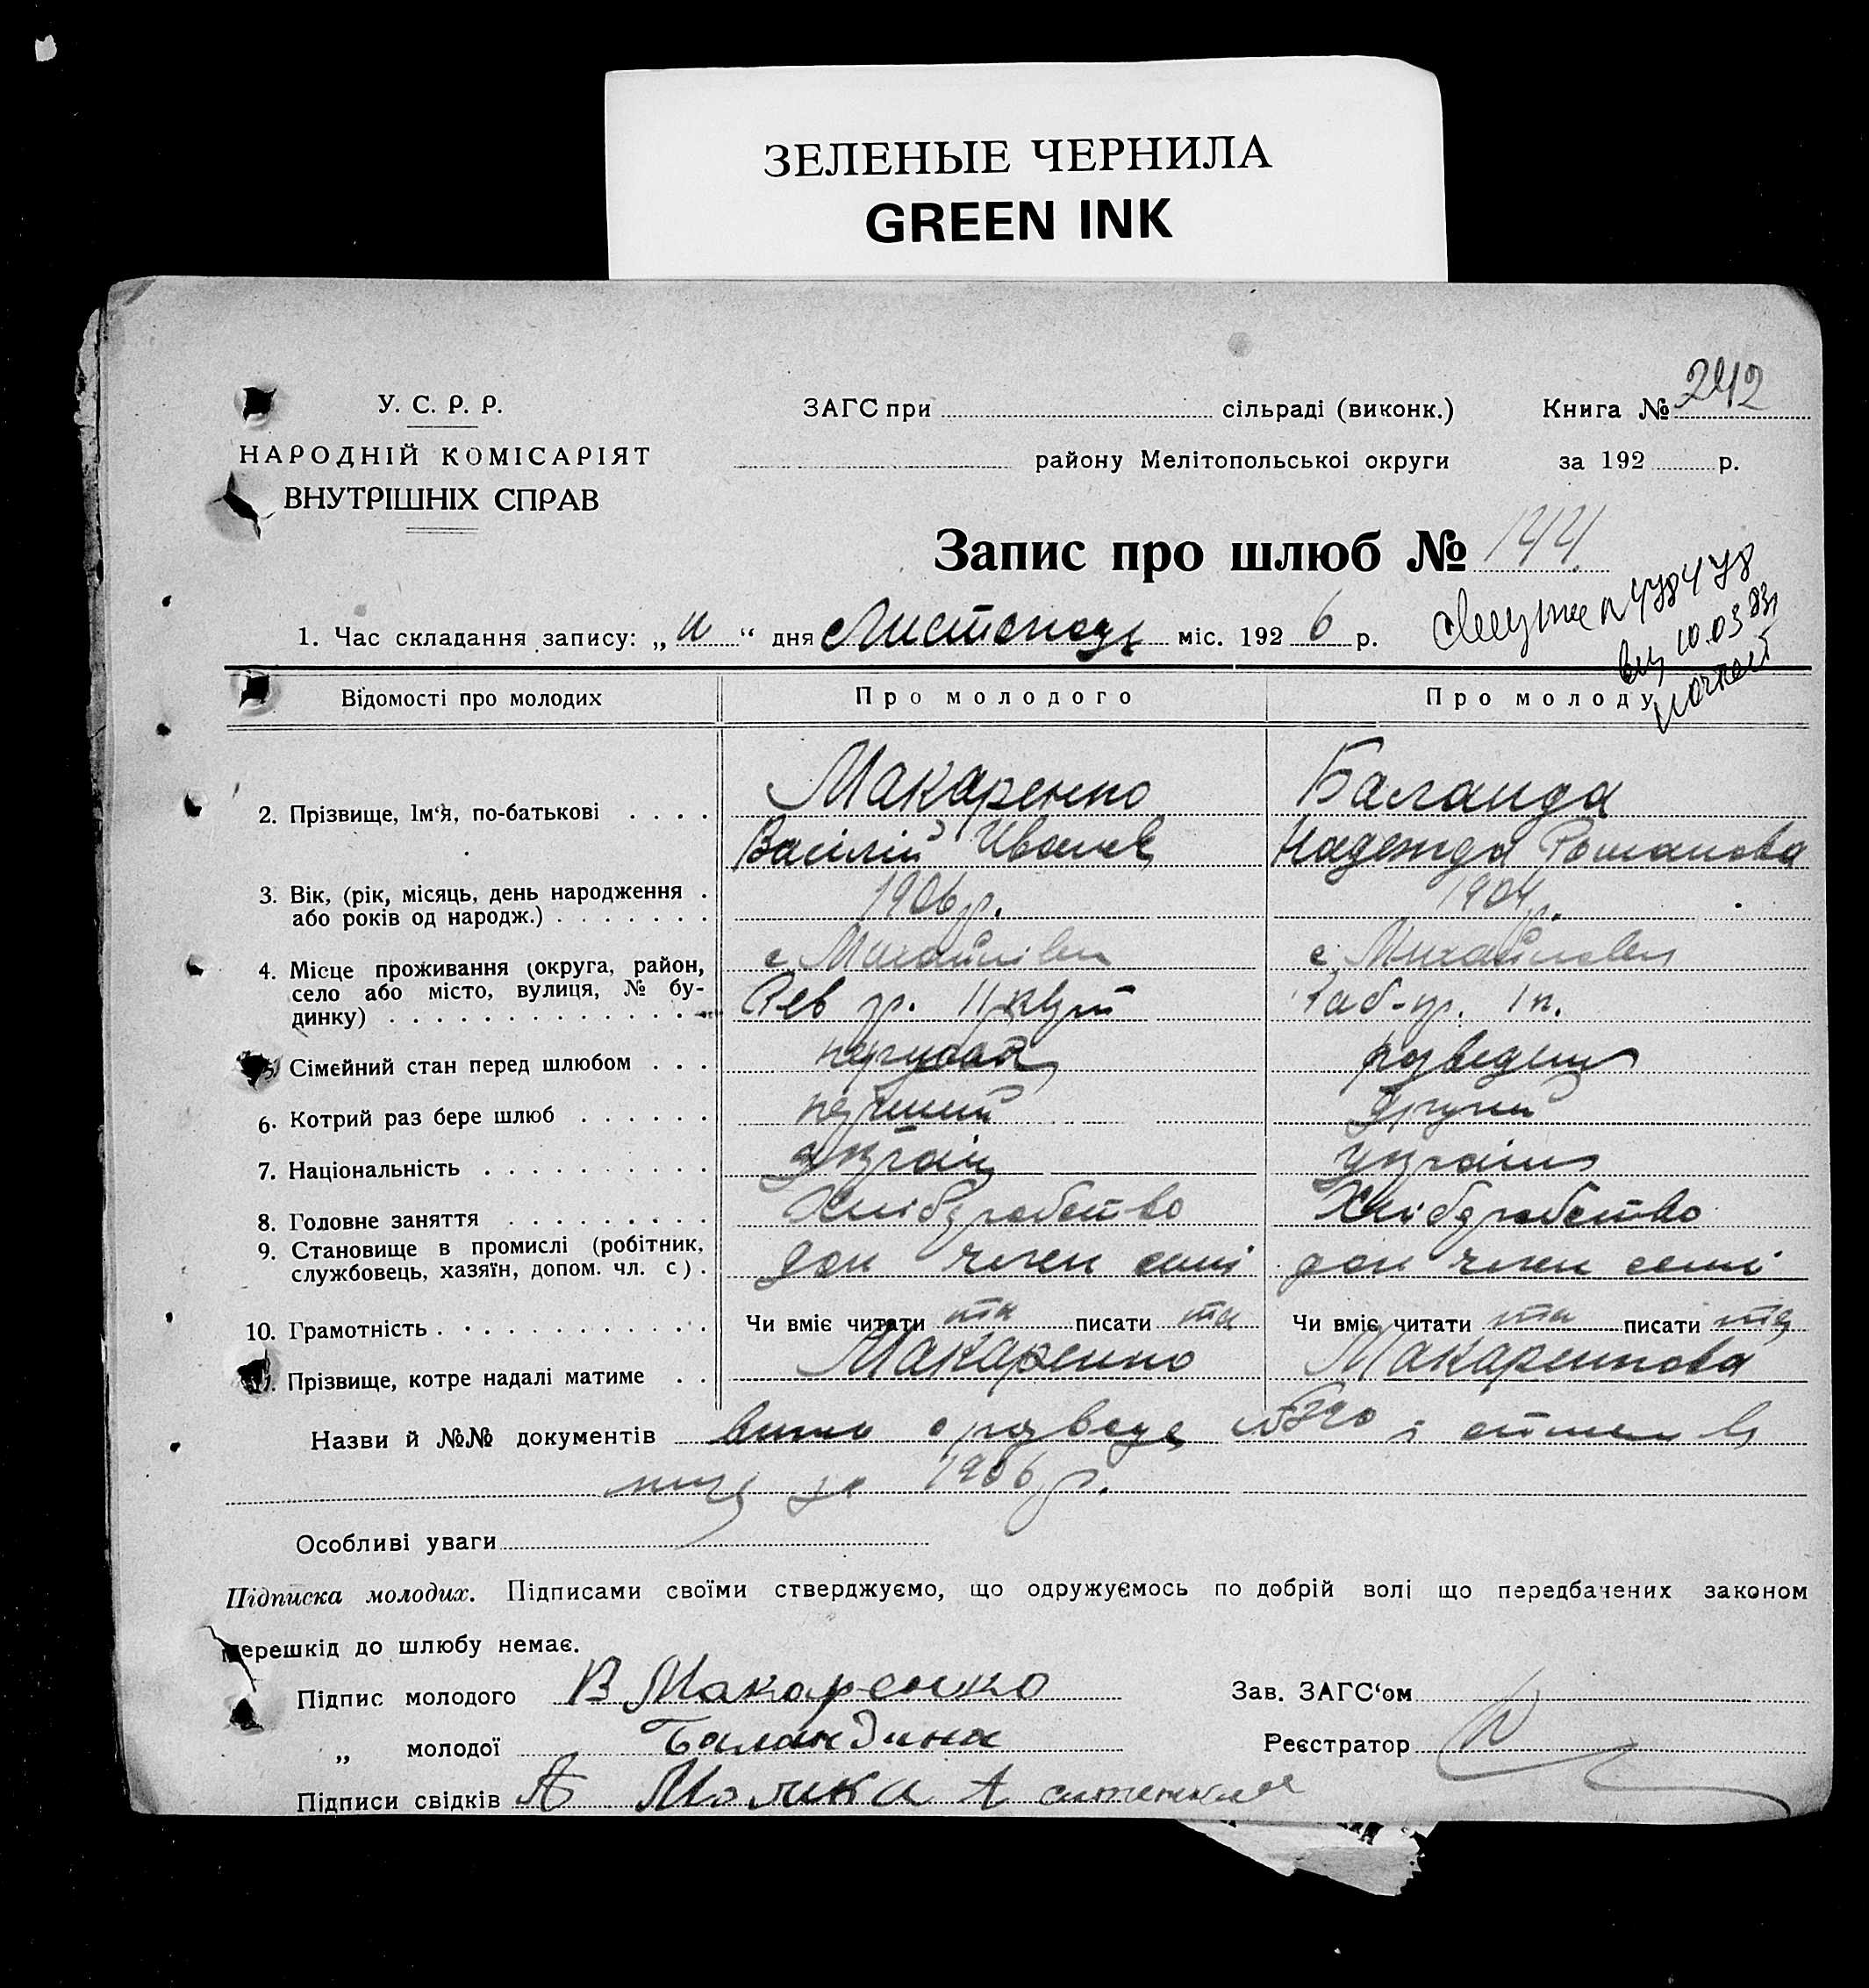 ЗЕЛЕНЫЕ ЧЕРНИЛА
GREEN INK
У. С. Р. Р.
НАРОДНІЙ КОМІСАРІЯТ
ВНУТРІШНІХ СПРАВ
ЗАГС при сільраді (виконк.)
району Мелітопольської округи
Книга № 242
за 192 р.
Запис про шлюб № 144.
1. Час складання запису: „ “ дня Листопад міс. 192 6 р.
10.03 83
Відомості про молодих
Про молодого
Про молоду
2. Прізвище, Ім‘я, по-батькові
Макаренко
Баланда
Василій Иванов
Надежда Романова
3. Вік, (рік, місяць, день народження
або років од народж.)
1906 р.
1904 р.
4. Місце проживання (округа, район,
село або місто, вулиця, № бу-
динку)
с Михайлівка
с Михайловка
Рев гр.
1 к.
5. Сімейний стан перед шлюбом
розведена
6. Котрий раз бере шлюб
перший
другий
7. Національність
україн
україн
8. Головне заняття
Хліборобство
Хліборобство
9. Становище в промислі (робітник,
службовець, хазяїн, допом. чл. с)
доп член сімї
доп член сімї
10. Грамотність
Чи вміє читати так писати так
Чи вміє читати так писати так
11. Прізвище, котре надалі матиме
Макаренко
Макаренкова
Назви й №№ документів о розвод
за 1906 р.
Особливі уваги
Підписка молодих. Підписами своїми стверджуємо, що одружуємось по добрій волі що передбачених законом
перешкід до шлюбу немає.
Підпис молодого В Макаренко
Зав. ЗАГС‘ом
„ молодої Баландина
Реєстратор
Підписи свідків